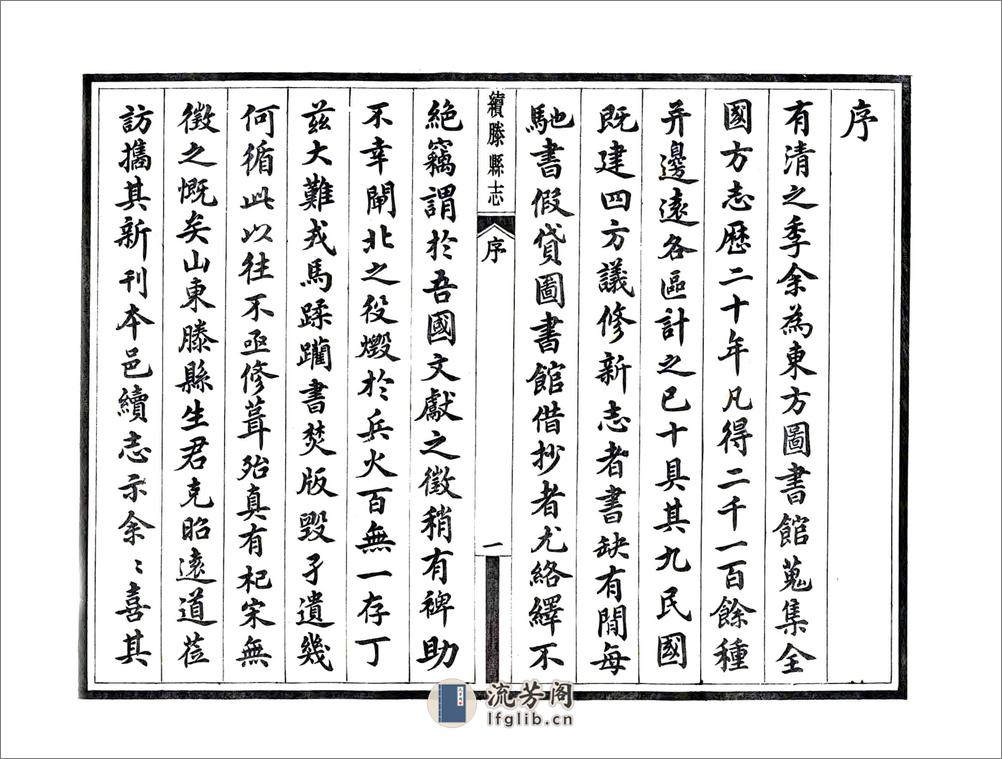 序
有清之季余為東方圖書館蒐集全
國方志歷二十年凡得二千一百餘種
并邊遠各區計之已十具其九民國
既建四方議修新志者書缺有間每
馳書假貸圖書館借抄者尤絡繹不
續滕縣志
序
一
絕竊謂於吾國文獻之徵稍有裨助
不幸閘北之役燬於兵火百無一存丁
茲大難戎馬蹂躪書焚版毀孑遺幾
何循此以往不亟修葺殆真有杞宋無
徵之慨矣山東滕縣生君克昭遠道蒞
訪攜其新刊本邑續志示余〻喜其
流芳阁
lfglib.cn